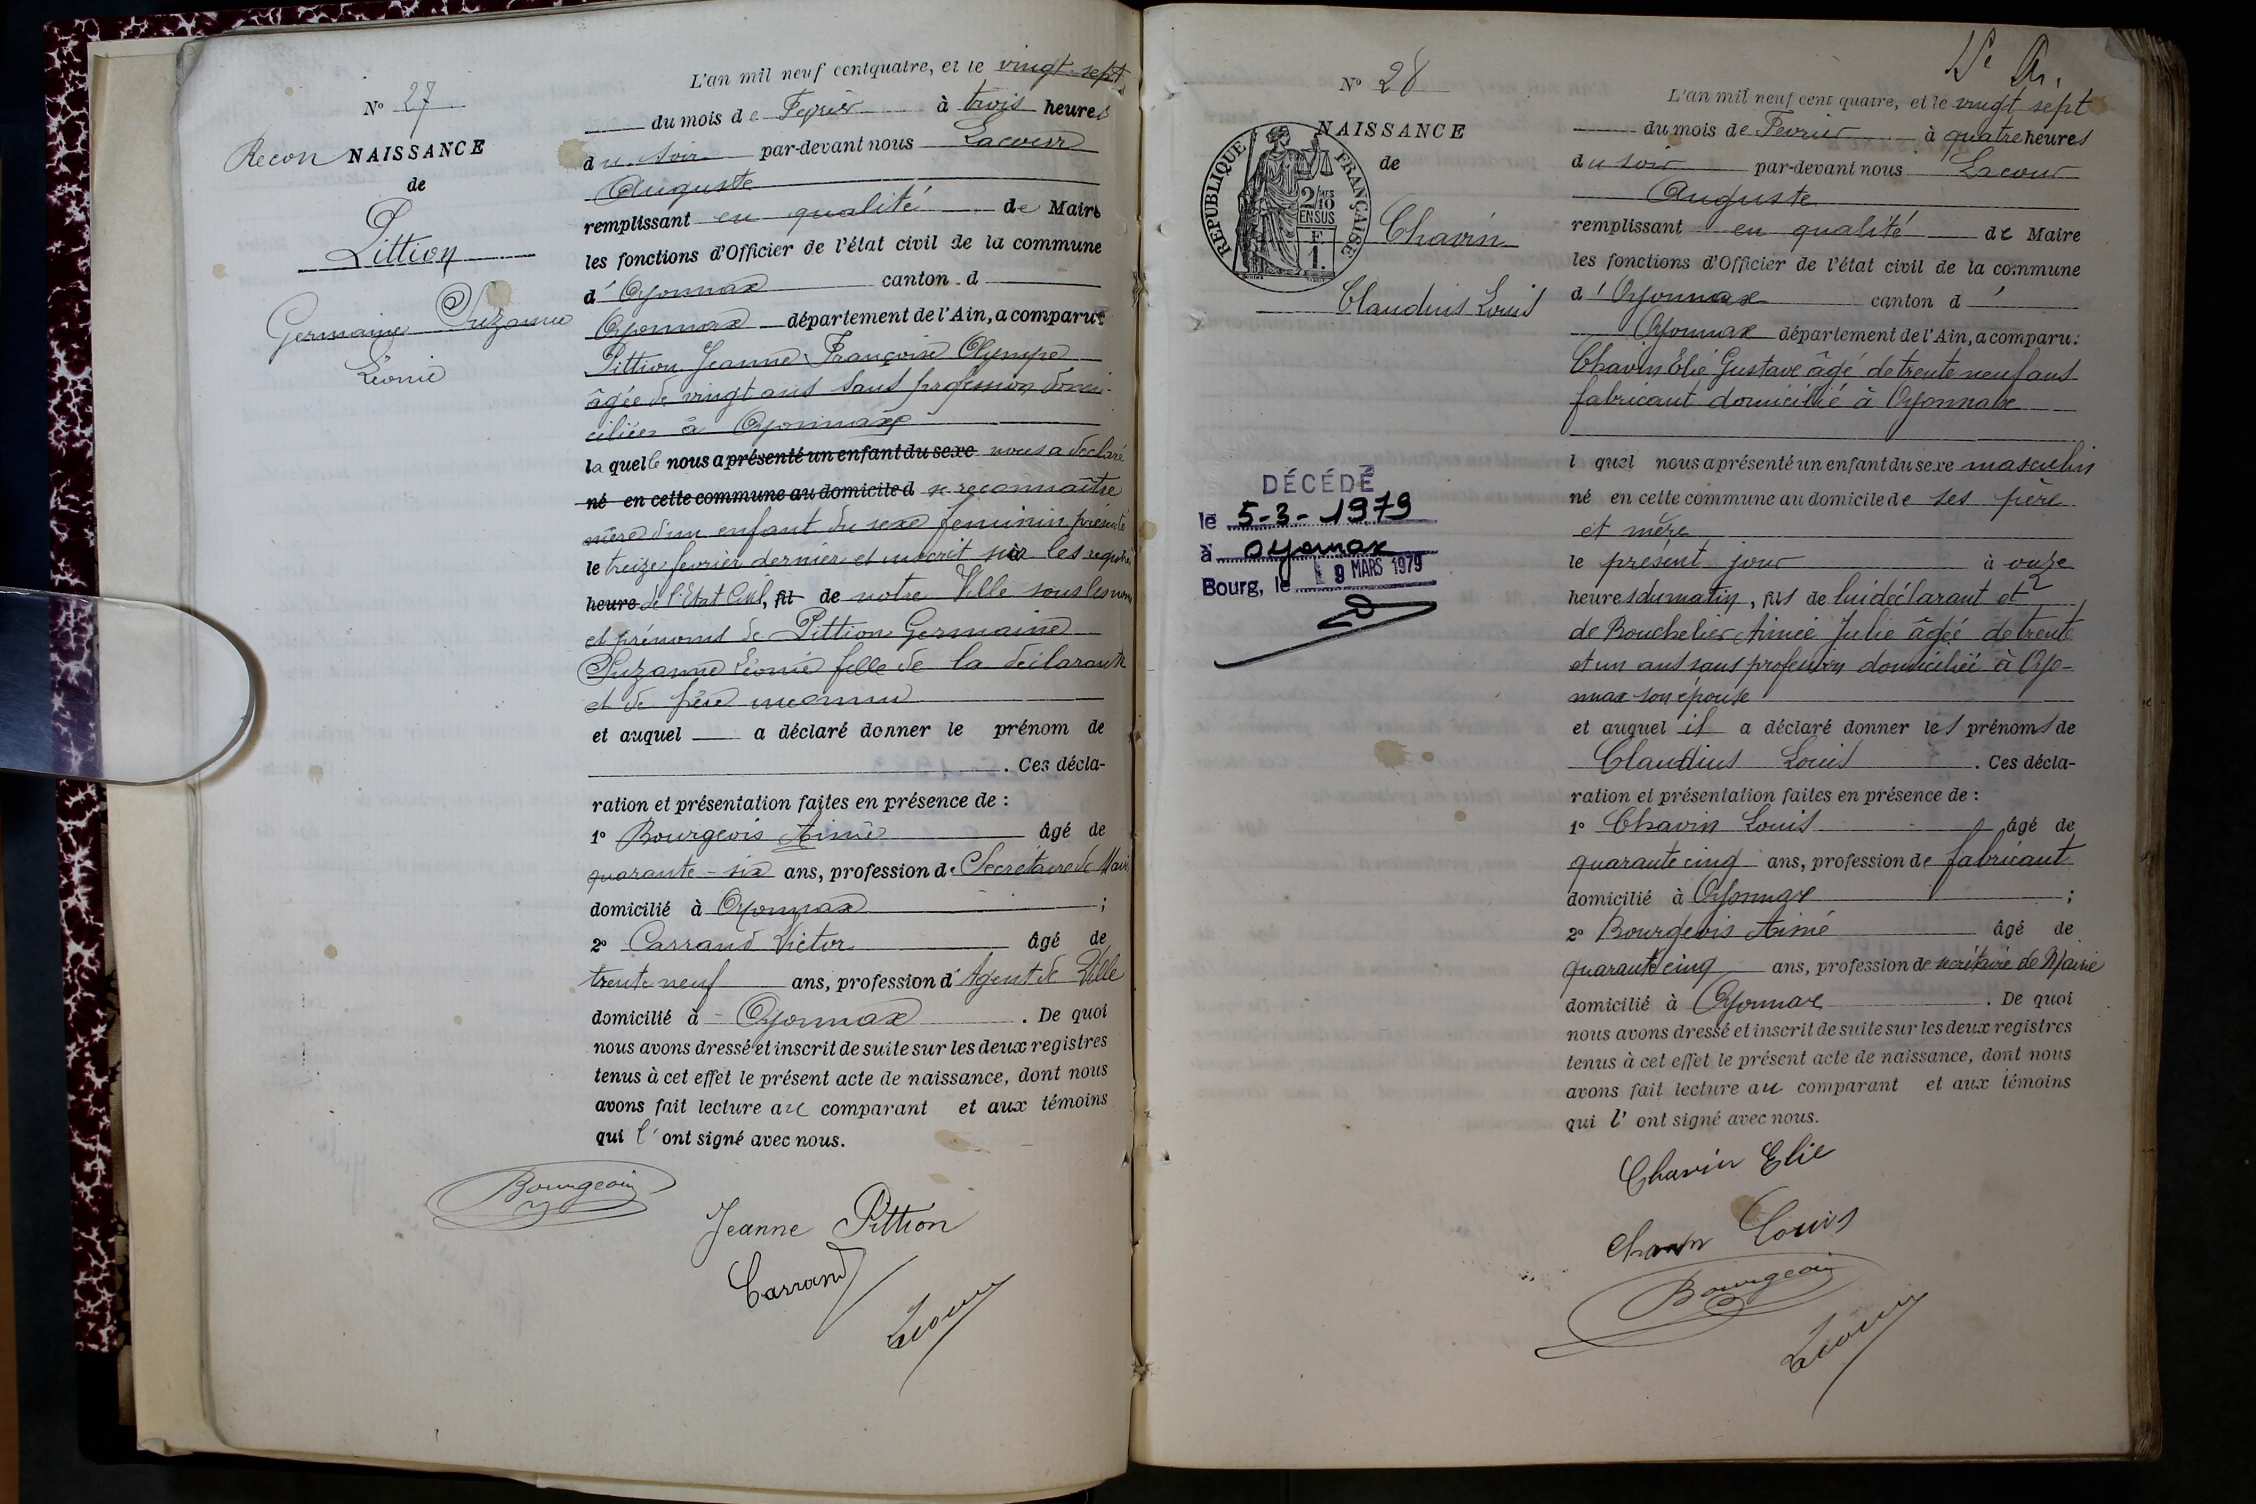 N° 27
Recon NAISSANCE
de
Pittion
Germaine Suzanne
Léonie
L'an mil neuf cent quatre, et le vingt-sept
du mois de Fevrier à trois heures
du soir par-devant nous Lacour
Auguste
remplissant en qualité de Maire
les fonctions d'Officier de l'état civil de la commune
d'Oyonnax canton d
Oyonnax département de l'Ain, a comparue
Pittion Jeanne Françoise Olympe
âgée de vingt ans sans profession domi-
ciliée à Oyonnax
laquelle nous a présenté un enfant du sexe nous a déclaré
né en cette commune au domicile d se reconnaître
mère d'un enfant du sexe feminin présenté
le treize fevrier dernier et inscrit sur à les registres
heure de l'Etat Civil, fil de notre Ville sous les noms
et prénoms de Pittion Germaine
Suzanne Léonie fille de la déclarante
et de père inconnu
et auquel a déclaré donner le prénom de
. Ces décla-
ration et présentation faites en présence de :
1° Bourgeois Aimé âgé de
quarante-six ans, profession de Secrétaire de Mairie
domicilié à Oyonnax ;
2° Carrand Victor âgé de
trente neuf ans, profession d'Agent de Ville
domicilié à Oyonnax . De quoi
nous avons dressé et inscrit de suite sur les deux registres
tenus à cet effet le présent acte de naissance, dont nous
avons fait lecture au comparant et aux témoins
qui l'ont signé avec nous.
Bourgeois
Jeanne Pittion
Carrand
Lacour
N° 28
NAISSANCE
de
RÉPUBLIQUE FRANÇAISE
2/10
EN SUS
F
1.
Chavin
Claudius Louis
DÉCÉDÉ
le 5-3-1979
à Oyonnax
Bourg, le 9 MARS 1979
L'an mil neuf cent quatre, et le vingt sept
du mois de Fevrier à quatre heures
du soir par-devant nous Lacour
Auguste
remplissant en qualité de Maire
les fonctions d'Officier de l'état civil de la commune
d'Oyonnax canton d'
Oyonnax département de l'Ain, a comparu:
Chavin Elie Gustave âgé de trente neuf ans
fabricant domicilié à Oyonnax
l quel nous a présenté un enfant du sexe masculin
né en cette commune au domicile de ses père
et mère
le présent jour à onze
heures du matin, fils de lui déclarant et
de Bouchelier Aimée Julie âgée de trente
et un ans sans profession domiciliée à Oyo-
nnax son épouse
et auquel il a déclaré donner les prénoms de
Claudius Louis . Ces décla-
ration et présentation faites en présence de :
1° Chavin Louis âgé de
quarante cinq ans, profession de fabricant
domicilié à Oyonnax ;
2° Bourgeois Aimé âgé de
quarante cinq ans, profession de secrétaire de Mairie
domicilié à Oyonnax . De quoi
nous avons dressé et inscrit de suite sur les deux registres
tenus à cet effet le présent acte de naissance, dont nous
avons fait lecture au comparant et aux témoins
qui l' ont signé avec nous.
Chavin Elie
Chavin Louis
Bourgeois
Lacour